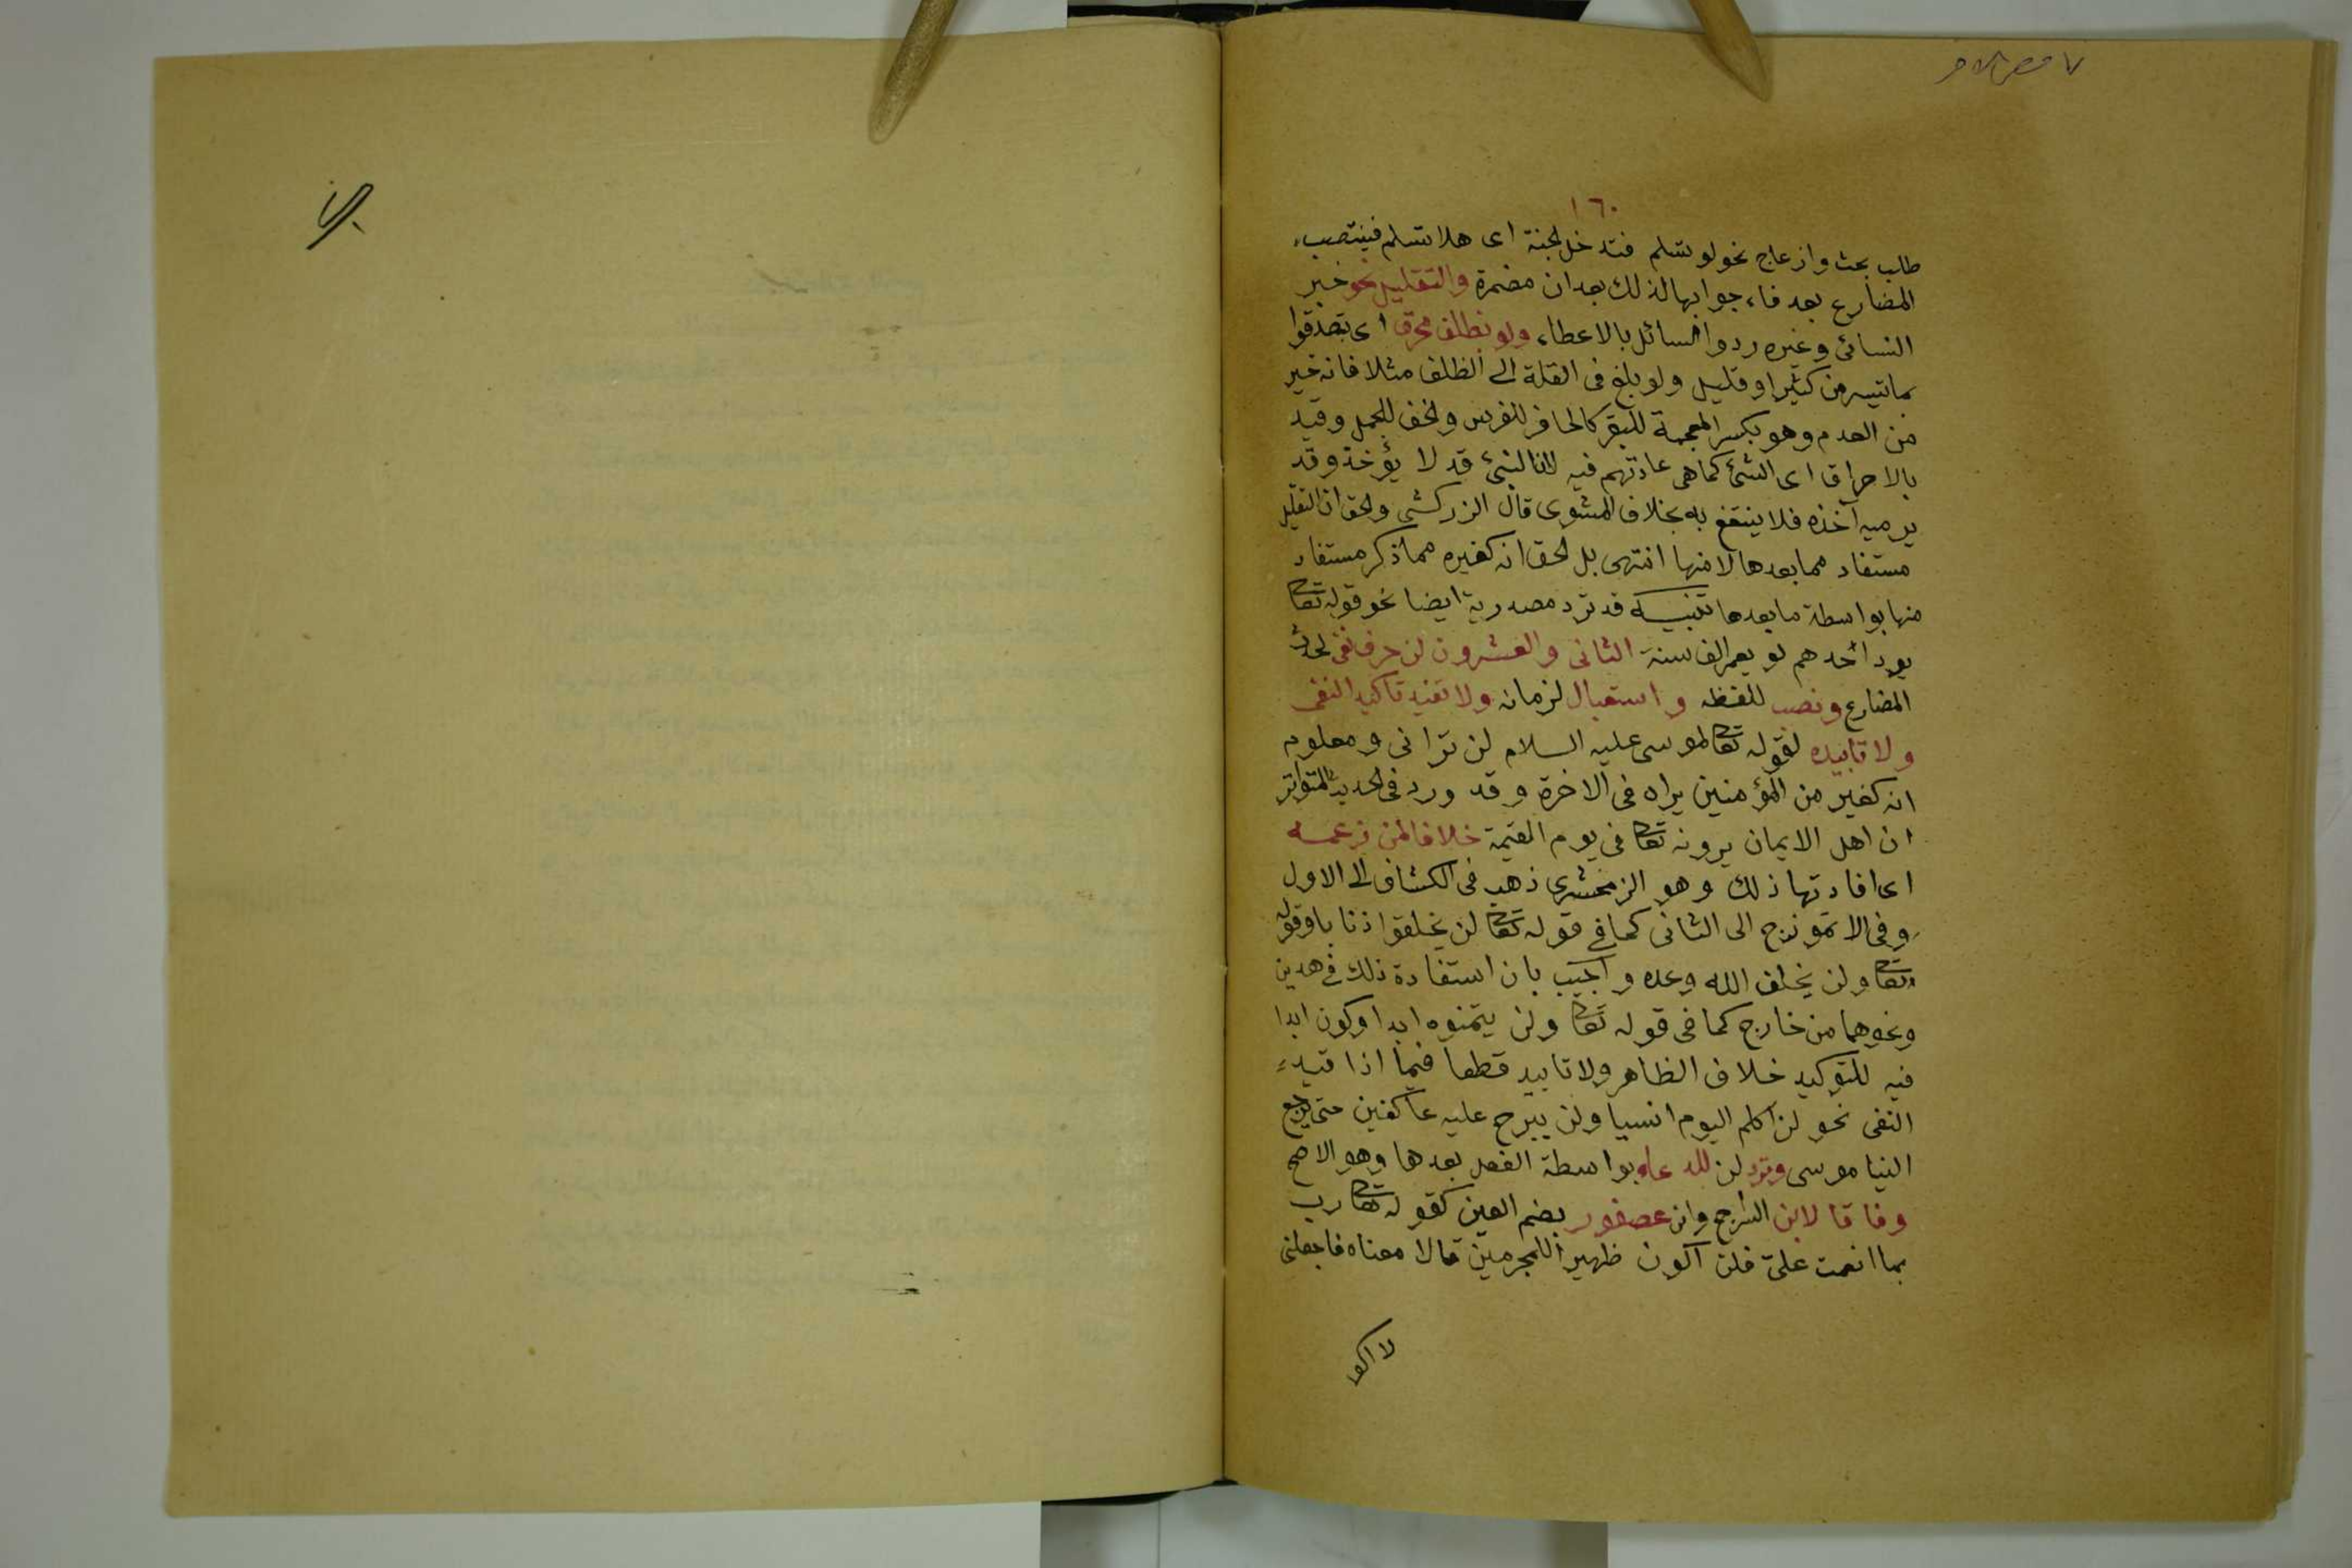 ١٦٠
طالب بحث وازعاج نحو لو تسلم فتدخل الجنة اى هلا تسلم فينتصب
المضارع بعد فاء جوابها لذلك بعد ان مضمرة والتقليل نحو خبر
النسائى وغيره ردوا السائل بالاعطاء ولو بظلف محرق اى تصدقوا
بما تيسر من كثير او قليل ولو بلغ فى القلة الى الظلف مثلا فانه خير
من العدم وهو بكسر المعجمة للبقر كالحافر للفرس والخف للجمل وقيد
بالاحراق اى الشئ كما هى عادتهم فيه لان النيئ قد لا يؤخذ وقد
يرميه آخذه فلا ينتفع به بخلاف المشوى قال الزركشى والحق ان التقليل
مستفاد مما بعدها لا منها انتهى بل الحق انه كغيره مما ذكر مستفاد
منها بواسطة ما بعدها تنبيه قد ترد مصدرية ايضا نحو قوله تعا
يود احدهم لو يعمر الف سنة الثانى والعشرون لن حرف نفى لحدث
المضارع ونصب للفظه واستقبال لزمانه ولا تفيد تاكيد النفى
ولا تابيده لقوله تعا لموسى عليه السلام لن ترانى ومعلوم
انه كغير من المؤمنين يراه فى الاخرة وقد ورد فى الحديث المتواتر
ان اهل الايمان يرونه تعا فى يوم القيمة خلافا لمن زعمه
اى افادتها ذلك وهو الزمخشرى ذهب فى الكشاف الى الاول
وفى الانموذج الى الثانى كما فى قوله تعا لن يخلقوا ذبابا وقوله
تعا ولن يخلف الله وعده واجيب بان استفادة ذلك فى هذين
ونحوهما من خارج كما فى قوله تعا ولن يتمنوه ابدا وكون ابدا
فيه للتوكيد خلاف الظاهر ولا تابيد قطعا فيما اذا قيد
النفى نحو لن اكلم اليوم انسيا ولن نبرح عليه عاكفين حتى يرجع
الينا موسى وترد لن للدعاء بواسطة الفعل بعدها وهو الاصح
وفاقا لابن السراج وابن عصفور بضم العين كقوله تعا رب
بما انعمت علىّ فلن اكون ظهيرا للمجرمين قالا معناه فاجعلنى
لا اكو